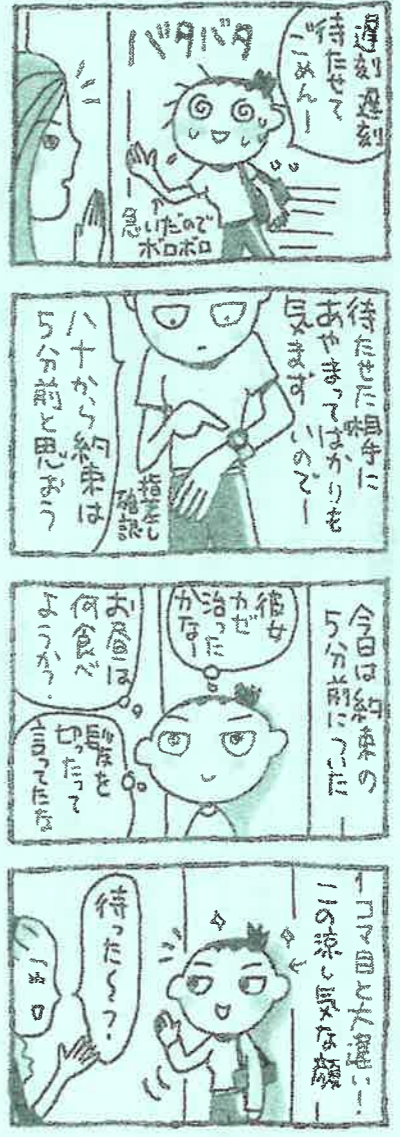 遅刻 遅刻
待たせて
ごめんー
バタバタ
急いだので
ボロボロ
待たせた相手に
あやまってばかりも
気まずいのでー
指差し
確認
ハナから約束は
5分前と思おう
今日は約束の
5分前についたー
彼女
カゼ
治った
かなー
お昼は
何食べ
ようか?
髪を
切ったって
言ってたな
1コマ目と大違い!
この涼し気な顔ー
待った〜?